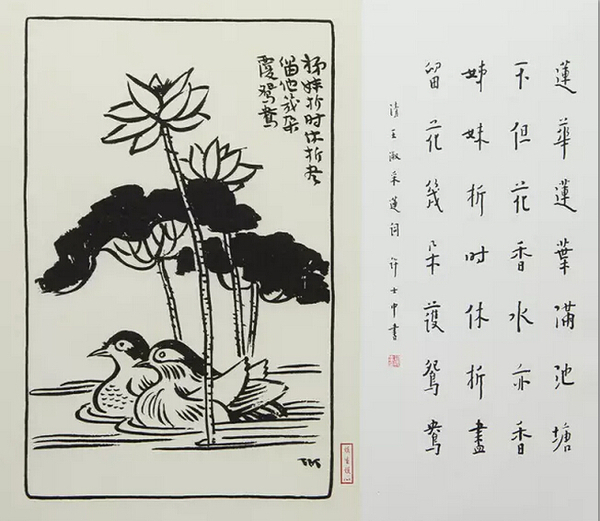 姊妹折时休折尽
留他幾朵
覆鸳鸯
TK
蓮華蓮葉滿池塘
不但花香水亦香
姊妹折时休折盡
留花幾朵護鴛鴦
清王淑采蓮詞 許士中書